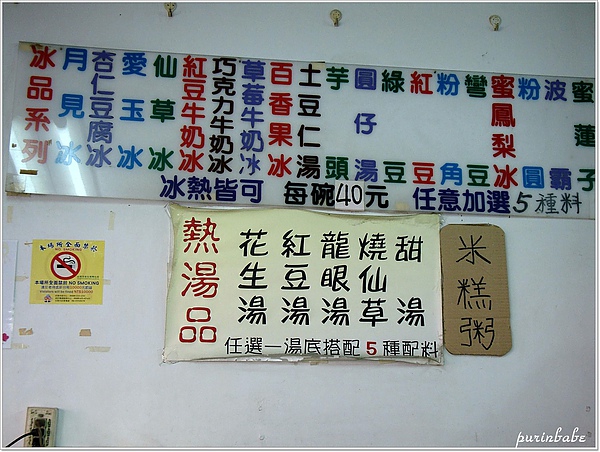 冰品系列
月見冰
杏仁豆腐冰
愛玉冰
仙草冰
紅豆牛奶冰
巧克力牛奶冰
草莓牛奶冰
百香果冰
土豆仁湯
芋頭
圓仔湯
綠豆
紅豆
粉角
彎豆
蜜鳳梨冰
粉圓
波霸
蜜蓮子
冰熱皆可 每碗40元 任意加選5種料
熱湯品
花生湯
紅豆湯
龍眼湯
燒仙草
甜湯
任選一湯底搭配5種配料
米糕粥
本場所全面禁菸
NO SMOKING
本場所全面禁菸 NO SMOKING
purinbabe